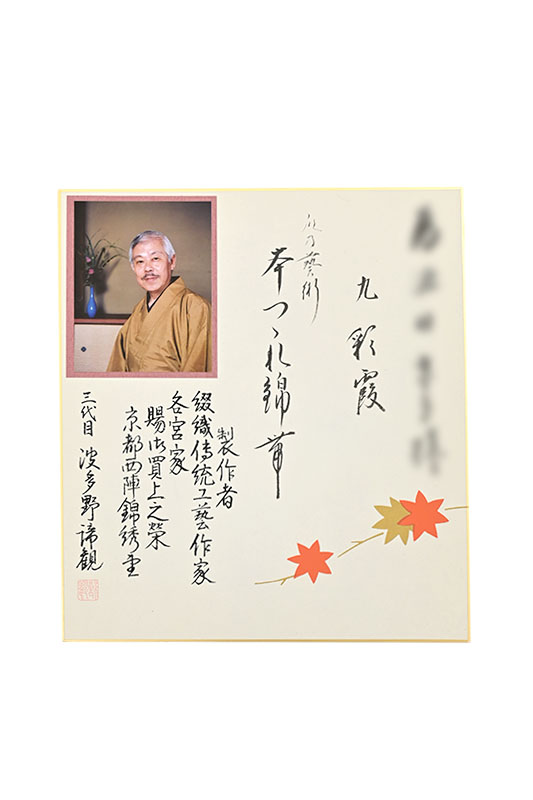 九彩霞
爪乃藝術
本つゞれ錦帯
製作者
綴織伝統工藝作家
各宮家
賜御買上之榮
京都西陣錦綉堂
三代目 波多野諦観